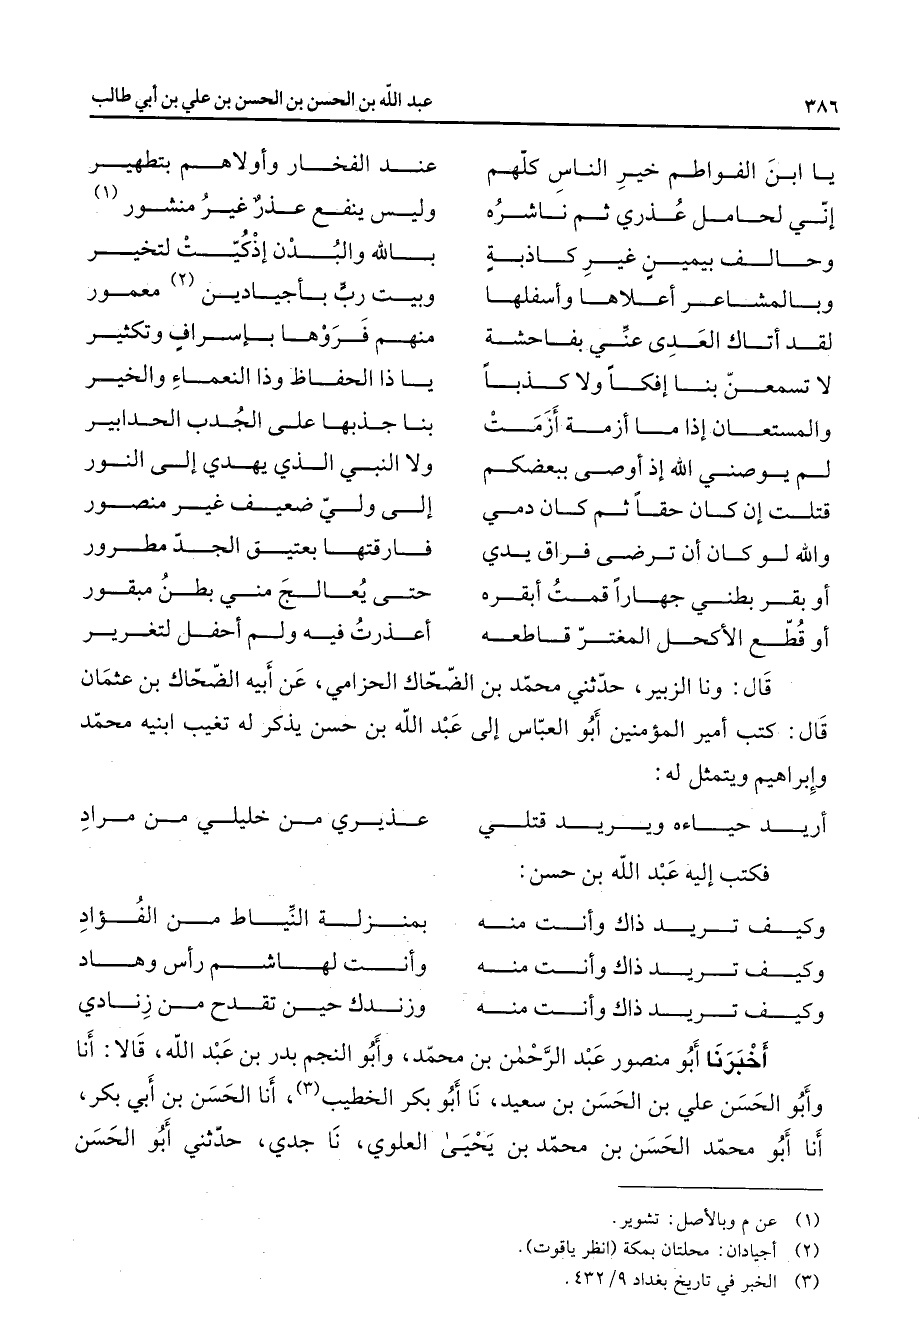 ٣٨٦ عبد الله بن الحسن بن الحسن بن علي بن أبي طالب
يا ابنَ الفواطم خيرِ الناس كلّهم عند الفخار وأولاهم بتطهير
إنّي لحامل عُذري ثم ناشرُه وليس ينفع عذرٌ غيرُ منشور (١)
وحالف بيمين غير كاذبةٍ بالله والبُدْن إذْ كُبّتْ لتخير
وبالمشاعر أعلاها وأسفلها وبيت ربّ بأجيادين (٢) معمور
لقد أتاك العَدى عنّي بفاحشة منهم فَرَوْها بإسرافٍ وتكثير
لا تسمعنّ بنا إفكاً ولا كذباً يا ذا الحفاظ وذا النعماء والخير
والمستعان إذا ما أزمة أَزَمَتْ بنا جذبها على الجُدب الحدابير
لم يوصني الله إذ أوصى ببعضكم ولا النبي الذي يهدي إلى النور
قتلت إن كان حقاً ثم كان دمي إلى وليّ ضعيف غير منصور
والله لو كان أن ترضى فراق يدي فارقتها بعتيق الحدّ مطرور
أو بقر بطني جهاراً قمتُ أبقره حتى يُعالجَ مني بطنُ مبقور
أو قُطّع الأكحل المغترّ قاطعه أعذرتُ فيه ولم أحفل لتغرير
قَال: ونا الزبير، حدّثني محمّد بن الضّحّاك الحزامي، عَن أَبيه الضّحّاك بن عثمَان
قَال: كتب أمير المؤمنين أَبُو العبّاس إلى عَبْد الله بن حسن يذكر له تغيب ابنيه محمّد
وإبراهيم ويتمثل له:
أريد حياءه ويريد قتلي عذيري من خليلي من مرادِ
فكتب إليه عَبْد الله بن حسن:
وكيف تريد ذاك وأنت منه بمنزلة النُّياط من الفُؤادِ
وكيف تريد ذاك وأنت منه وأنت لهاشم رأس وهاد
وكيف تريد ذاك وأنت منه وزندك حين تقدح من زِنادي
أَخْبَرَنَا أَبُو منصور عَبْد الرَّحْمٰن بن محمّد، وأَبُو النجم بدر بن عَبْد الله، قَالا: أَنا
وأَبُو الحَسَن علي بن الحَسَن بن سعيد، نَا أَبُو بكر الخطيب(٣)، أَنا الحَسَن بن أَبي بكر،
أَنا أَبُو محمّد الحَسَن بن محمّد بن يَحْيَىٰ العلوي، نَا جدي، حدّثني أَبُو الحَسَن
(١) عن م وبالأصل: تشوير.
(٢) أجيادان: محلتان بمكة (انظر ياقوت).
(٣) الخبر في تاريخ بغداد ٩/ ٤٣٢.